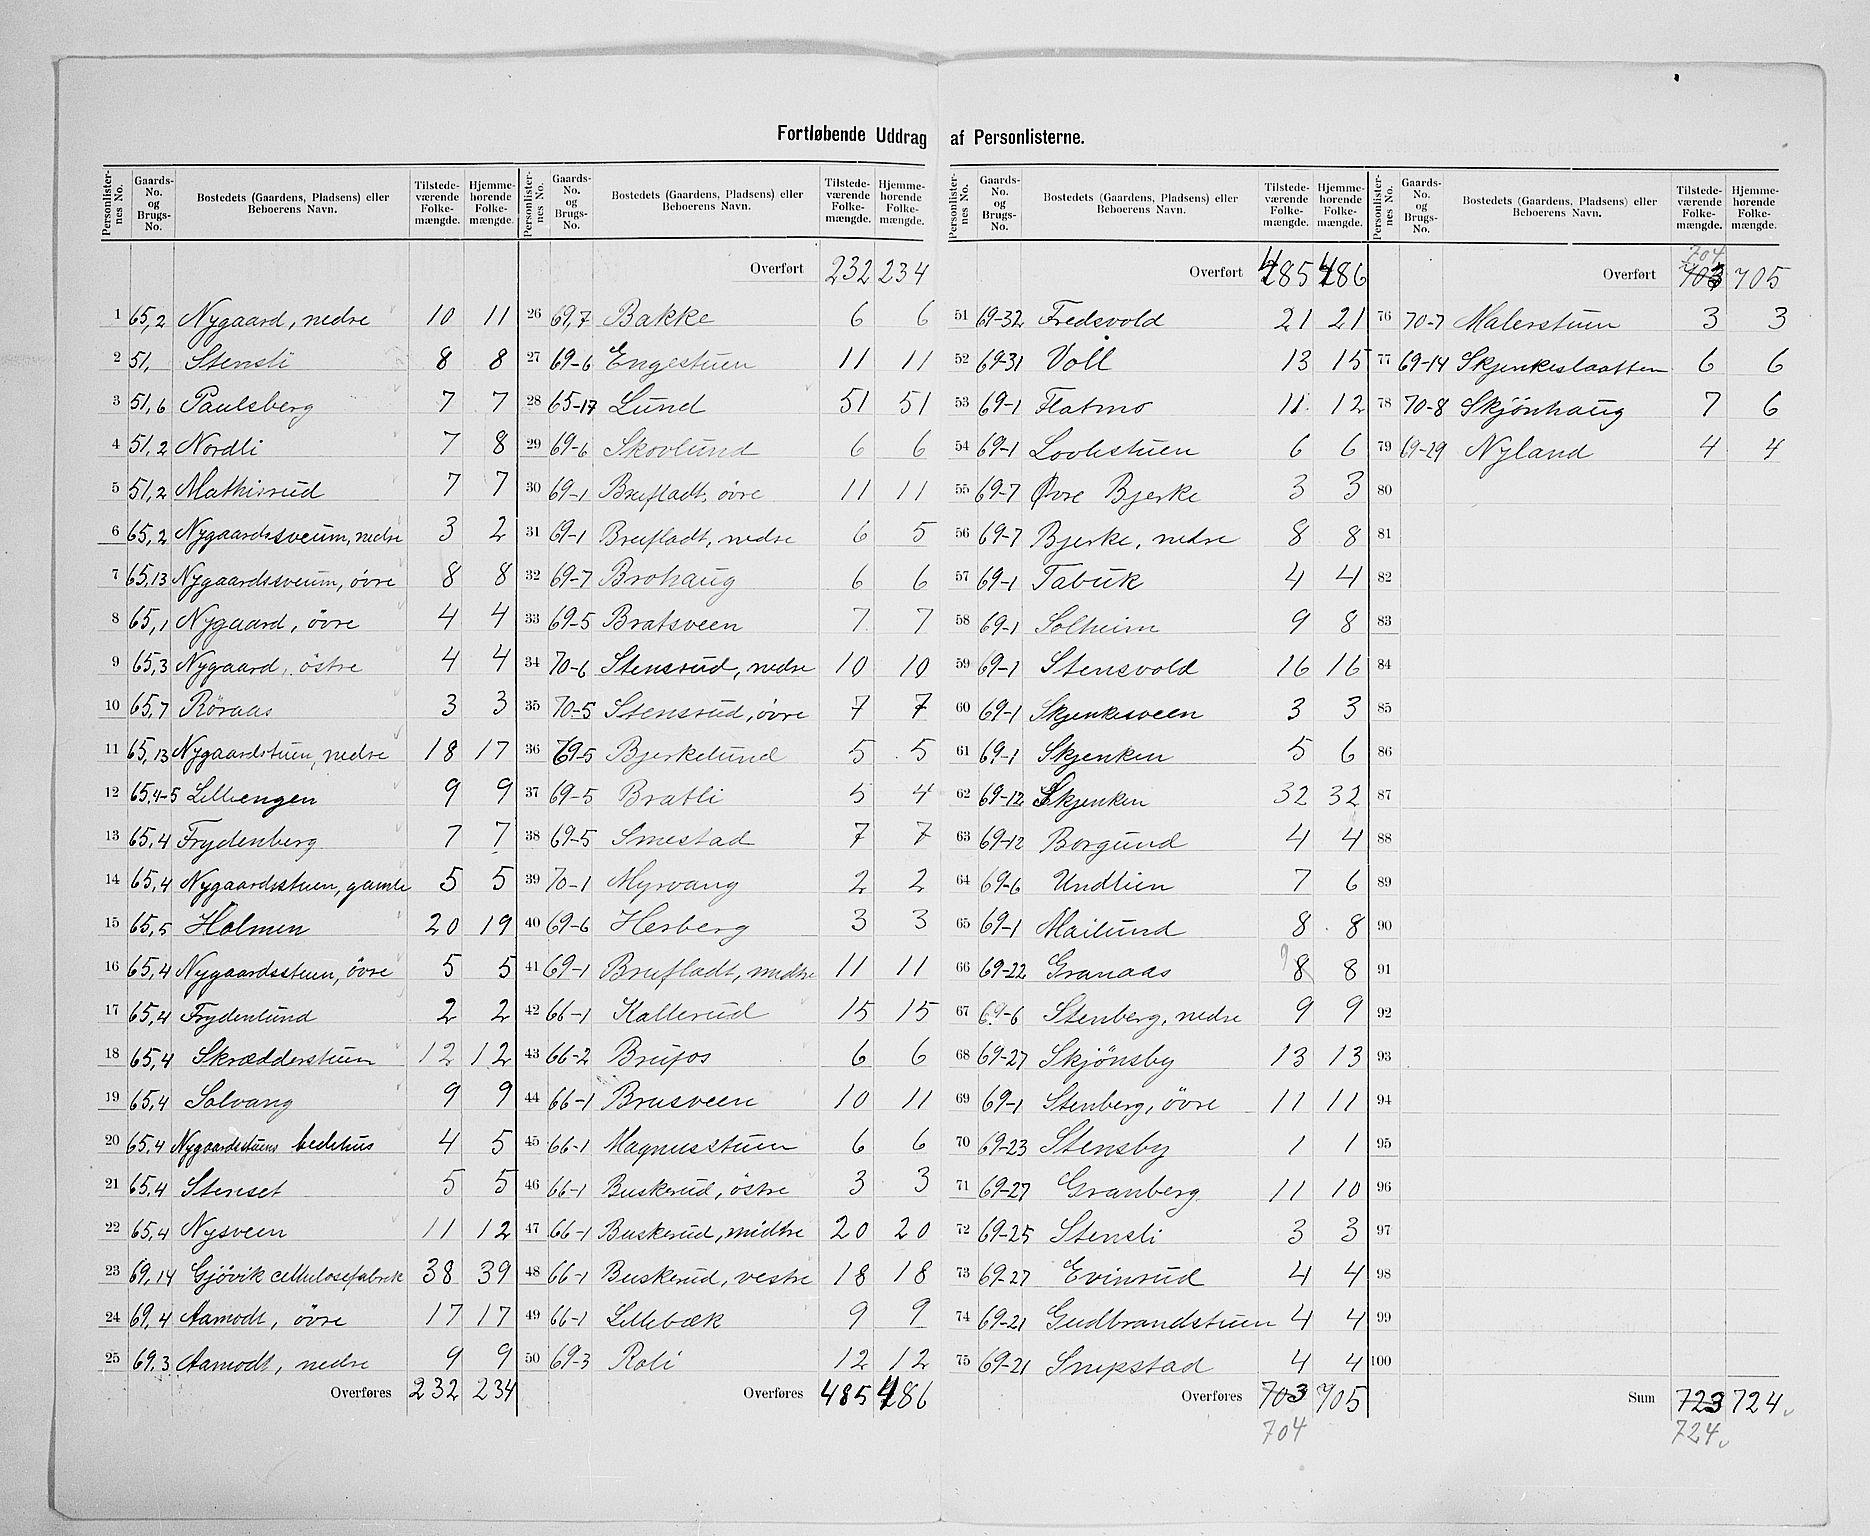 Fortløbende Uddrag af Personlisterne.
Personlisternes No. Gaards-No. og Brugs-No. Bostedets (Gaardens, Pladsens) eller Beboerens Navn. Tilstedeværende Folkemængde. Hjemmehørende Folkemængde.
1 65,2 Nygaard, nedre 10 11
2 51, Stensli 8 8
3 51,6 Paulsberg 7 7
4 51,2 Nordli 7 8
5 51,2 Mathisrud 7 7
6 65,2 Nygaardssveum, nedre 3 2
7 65,13 Nygaardssveum, övre 8 8
8 65,1 Nygaard, övre 4 4
9 65,3 Nygaard, östre 4 4
10 65,7 Röraas 3 3
11 65,13 Nygaardstuen, nedre 18 17
12 65,4-5 Lilleengen 9 9
13 65,4 Frydenberg 7 7
14 65,4 Nygaardsstuen, gamle 5 5
15 65,5 Holmen 20 19
16 65,4 Nygaardsstuen, övre 5 5
17 65,4 Frydenlund 2 2
18 65,4 Skrædderstuen 12 12
19 65,4 Solvang 9 9
20 65,4 Nygaardsstuens bedehus 4 5
21 65,4 Stenset 5 5
22 65,4 Nysveen 11 12
23 69,14 Gjövik cellulosefabrik 38 39
24 69,4 Aamodt, övre 17 17
25 69,3 Aamodt, nedre 9 9
Overføres 232 234
Personlisternes No. Gaards-No. og Brugs-No. Bostedets (Gaardens, Pladsens) eller Beboerens Navn. Tilstedeværende Folkemængde. Hjemmehørende Folkemængde.
Overført 232 234
26 69,7 Bakke 6 6
27 69-6 Engestuen 11 11
28 65-17 Lund 51 51
29 69-6 Skovlund 6 6
30 69-1 Brufladt, övre 11 11
31 69-1 Brufladt, nedre 6 5
32 69-7 Brohaug 6 6
33 69-5 Bratsveen 7 7
34 70-6 Stensrud, nedre 10 10
35 70-5 Stensrud, övre 7 7
36 69-5 Bjerkelund 5 5
37 69-5 Bratli 5 4
38 69-5 Smestad 7 7
39 70-1 Myrvang 2 2
40 69-6 Herberg 3 3
41 69-1 Brufladt, midtre 11 11
42 66-1 Kallerud 15 15
43 66-2 Brufos 6 6
44 66-1 Brusveen 10 11
45 66-1 Magnusstuen 6 6
46 66-1 Buskerud, östre 3 3
47 66-1 Buskerud, midtre 20 20
48 66-1 Buskerud, vestre 18 18
49 66-1 Lillebæk 9 9
50 69-3 Roli 12 12
Overføres 485 486
Personlisternes No. Gaards-No. og Brugs-No. Bostedets (Gaardens, Pladsens) eller Beboerens Navn. Tilstedeværende Folkemængde. Hjemmehørende Folkemængde.
Overført 485 486
51 69-32 Fredsvold 21 21
52 69-31 Voll 13 15
53 69-1 Flatmo 11 12
54 69-1 Lovlistuen 6 6
55 69-7 Øvre Bjerke 3 3
56 69-7 Bjerke, nedre 8 8
57 69-1 Tabuk 4 4
58 69-1 Solheim 9 8
59 69-1 Stensvold 16 16
60 69-1 Skjenkesveen 3 3
61 69-1 Skjenken 5 6
62 69-12 Skjenken 32 32
63 69-12 Borgund 4 4
64 69-6 Undlien 7 6
65 69-1 Mailund 8 8
66 69-22 Granaas 9 8 8
67 69-6 Stenberg, nedre 9 9
68 69-27 Skjönsby 13 13
69 69-1 Stenberg, övre 11 11
70 69-23 Stensby 1 1
71 69-27 Granberg 11 10
72 69-25 Stensli 3 3
73 69-27 Evinrud 4 4
74 69-21 Gudbrandstuen 4 4
75 69-21 Snipstad 4 4
Overføres 703 705
704
Personlisternes No. Gaards-No. og Brugs-No. Bostedets (Gaardens, Pladsens) eller Beboerens Navn. Tilstedeværende Folkemængde. Hjemmehørende Folkemængde.
704
Overført 703 705
76 70-7 Malerstuen 3 3
77 69-14 Skjenkeslaatten 6 6
78 70-8 Skjönhaug 7 6
79 69-29 Nyland 4 4
80
81
82
83
84
85
86
87
88
89
90
91
92
93
94
95
96
97
98
99
100
Sum 723 724
724